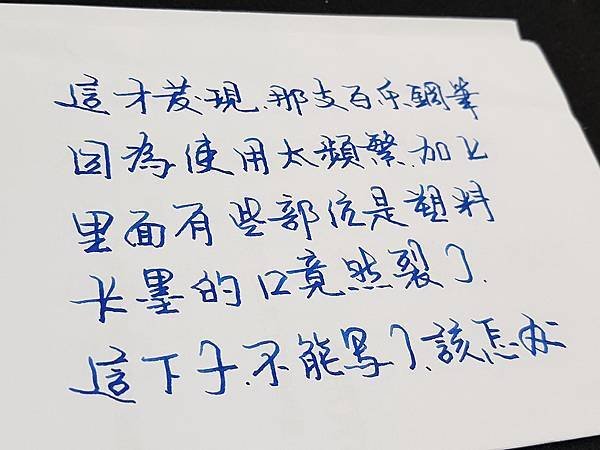 這才发現.那支百乐鋼筆
因為使用太頻繁.加上
里面有些部位是塑料
长墨的口竟然裂了.
這下子.不能写了.該怎办